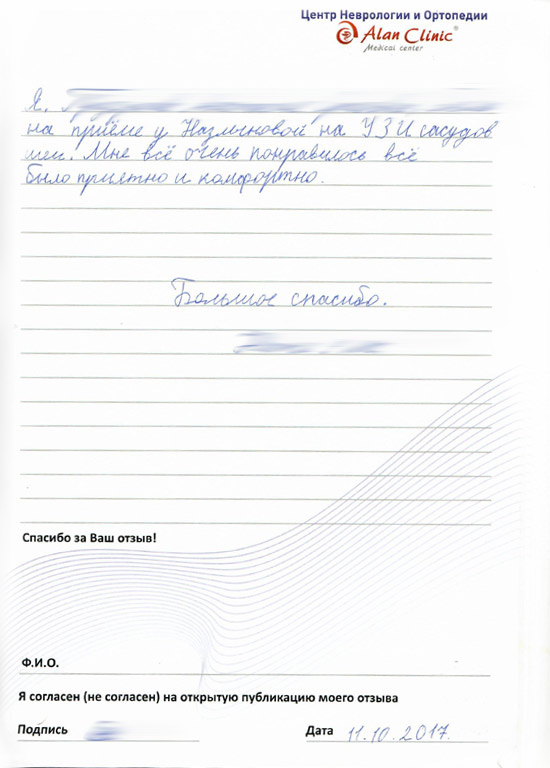 Центр Неврологии и Ортопедии
Alan Clinic®
Medical center
Я,
на приёме у Назмыновой на УЗИ сасудов
шеи. Мне всё очень понравилось всё
было приятно и комфортно.
Большое спасибо.
Спасибо за Ваш отзыв!
Ф.И.О.
Я согласен (не согласен) на открытую публикацию моего отзыва
Подпись
Дата 11.10.2017.